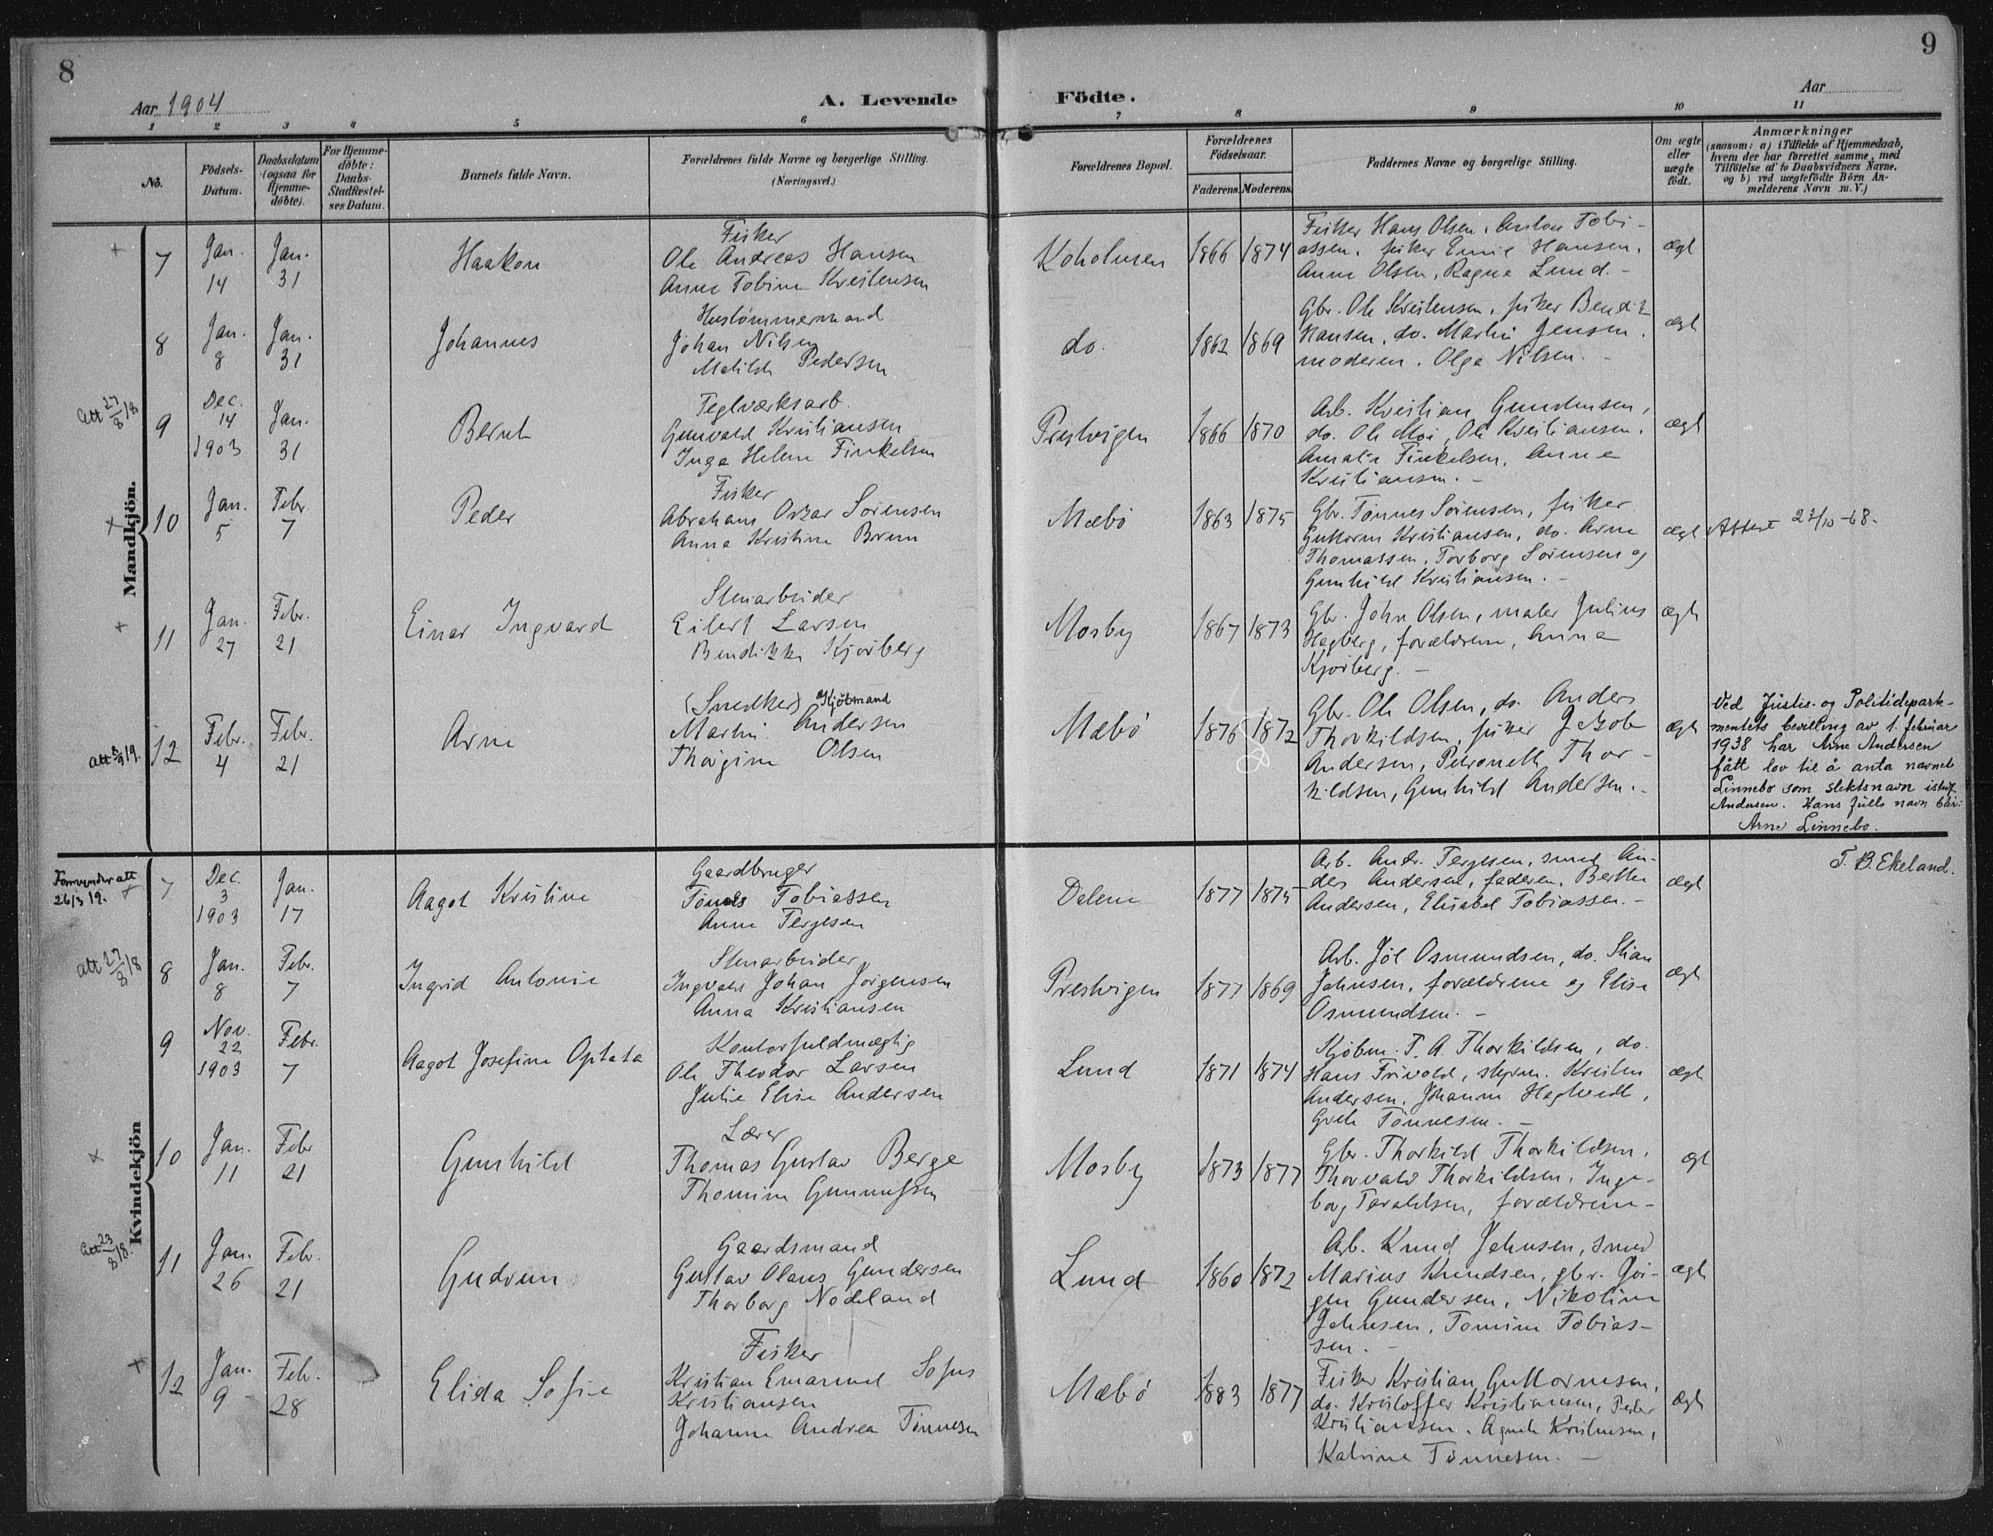 8
9
Aar 1904
A. Levende Födte.
Aar
1 2 3 4 5 6 7 8 9 10 11
No.
Födsels-Datum.
Daabsdatum (ogsaa for Hjemme-döbte).
For Hjemme-döbte: Daabs-Stadfæstel-ses Datum.
Barnets fulde Navn.
Forældrenes fulde Navne og borgerlige Stilling.
(Næringsvei.)
Forældrenes Bopæl.
Forældrenes Födselsaar.
Faderens. Moderens.
Faddernes Navne og borgerlige Stilling.
Om ægte eller uægte födt.
Anmærkninger
(saasom: a) i Tilfælde af Hjemmedaab,
hvem der har forrettet samme, med
Tilföielse af to Daabsvidners Navne,
og b) ved uægtefödte Börn An-
melderens Navn m. V.)
Mandkjön.
7 Jan. 14 Jan. 31 Haakon
Fisker
Ole Andreas Hansen
Anne Tobine Kristensen
Koholmen 1866 1874
Fisker Hans Olsen, Anton Tobi-
assen, fisker Emil Hansen,
Anne Olsen, Ragna Lund. -
ægt
8 Jan. 8 Jan. 31 Johannes
Hustømmermand
Johan Nilsen
Matilde Pedersen
do. 1862 1869
Gbr. Ole Kristensen, fisker Bendik
Hansen, do. Martin Jensen,
moderen, Olga Nilsen. -
ægt
Att 27/8 18
9 Dec. 14 1903 Jan. 31 Bernt
Teglværksarb.
Gunvald Kristiansen
Inga Helene Finkelsen
Prestvigen 1866 1870
Arb. Kristian Gundersen,
do. Ole Moi, Ole Kristiansen,
Amalie Finkelsen, Anne
Kristiansen. -
ægt
10 Jan. 5 Febr 7 Peder
Fisker
Abraham Oskar Sørensen
Anna Kristine Brunn
Mæbø 1863 1875
Gbr. Tønnes Sørensen, fisker
Guttorm Kristiansen, do. Arne
Thomassen, Torborg Sørensen og
Gunhild Kristiansen. -
ægt Attest 23/10-68.
11 Jan. 27 Febr. 21 Einar Ingvard
Stenarbeider
Eilert Larsen
Bendikke Kjørberg
Mosby 1867 1873
Gbr. John Olsen, maler Julius
Hagberg, forældrene, Anna
Kjørberg. -
ægt
12 Febr. 4 Febr. 21 Arne
(Snedker) Kjøbmand
Martin Andersen
Thorgine Olsen
Mæbø 1876 1872
Gbr. Ole Olsen, do. Anders
Thorkildsen, fisker Jakob
Andersen, Petronelle Thor-
kildsen, Gunhild Andersen. -
ægt
Ved Justis- og Politidepark-
mentets bevilling av 1. februar
1938 har Arne Andersen
fått lov til å anta navnet
Linnebo som slektsnavn istf.
Andersen. Hans fulle navn blir:
Arne Linnebo.
T. B. Ekeland.
Kvindekjön
Formynder att
26/3 19.
7 Dec. 3 1903 Jan. 17 Aagot Kristine
Gaardbruger
Tønnes Tobiassen
Anne Terjesen
Dalene 1877 1875
Arb. Andr. Terjesen, smed An-
ders Andersen, faderen, Berthe
Andersen, Elisabet Tobiassen. -
ægt
att 27/8 18
8 Jan. 8 Febr. 7 Ingrid Antonie
Stenarbeider
Ingvald Johan Jørgensen
Anna Kristiansen
Prestvigen 1877 1869
Arb. Joël Osmundsen, do. Stian
Jahnsen, forældrene og Elise
Osmundsen. -
ægt
9 Nov. 22 1903 Febr. 7 Aagot Josefine Optata
Kontorfuldmægtig
Ole Theodor Larsen
Julie Elise Andersen
Lund 1871 1874
Kjøbm. T. A. Thorkildsen, do.
Hans Frivold, styrm. Kristen
Andersen, Johanne Hegtvedt,
Grethe Tønnesen. -
ægt
10 Jan. 11 Febr 21 Gunhild
Lærer
Thomas Gustav Berge
Thomine Gunnufsen
Mosby 1873 1877
Gbr. Thorkild Thorkildsen,
Thorvald Thorkildsen, Inge-
borg Taraldsen, forældrene -
ægt
Att 23/8 18.
11 Jan. 26 Febr. 21 Gudrun
Gaardsmand
Gustav Olaus Gundersen
Thorborg Nodeland
Lund 1860 1872
Arb. Knud Jahnsen, smed
Marius Knudsen, gbr. Jør-
gen Gundersen, Nikoline
Jahnsen, Tomine Tobias-
sen. -
ægt
12 Jan. 9 Febr. 28 Elida Sofie
Fisker
Kristian Emanuel Sofus
Kristiansen
Johanne Andrea Tønnesen
Mæbø 1883 1877
Fisker Kristian Guttormsen,
do. Kristoffer Kristiansen, Peder
Kristiansen, Agnete Kristensen,
Katrine Tønnesen. -
ægt